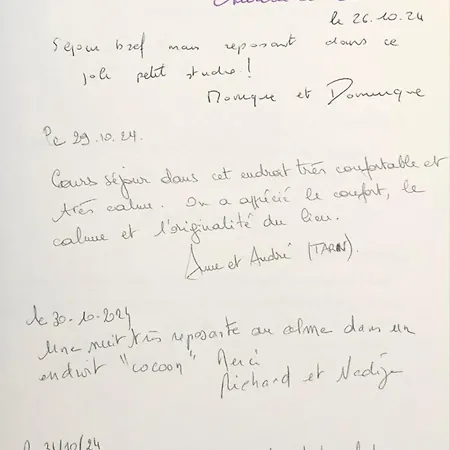 le 26.10.24
Séjour bref mais reposant dans ce
joli petit studio!
Monique et Dominique
Le 29.10.24.
Cours séjour dans cet endroit très confortable et
très calme. On a apprécié le confort, le
calme et l'originalité du lieu.
Anne et André (TARN).
le 30.10.2024
Une nuit très reposante au calme dans un
endroit "cocoon" Merci
Richard et Nadège
31/10/24